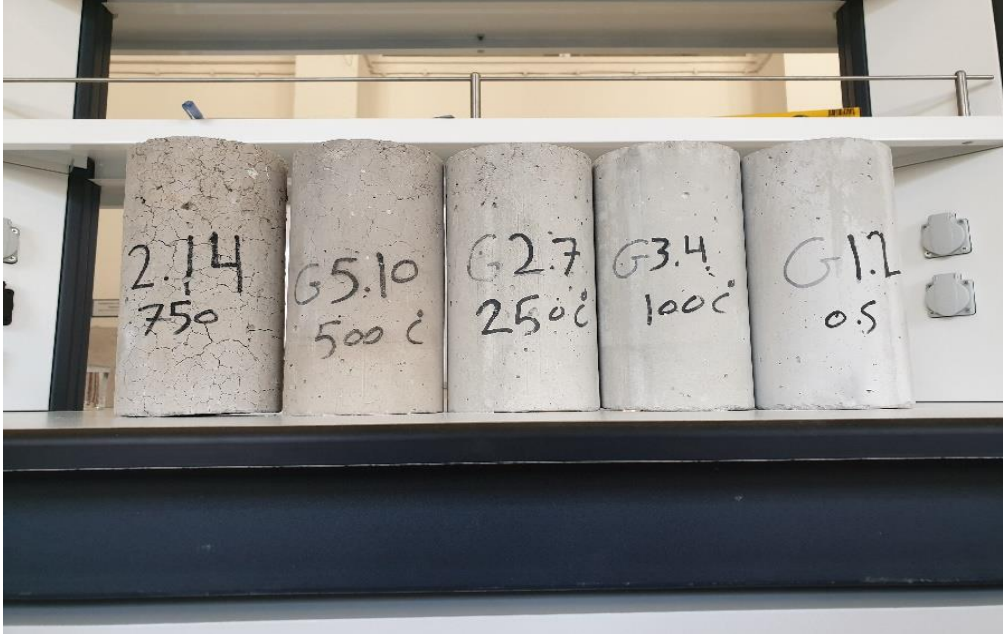 2.14
750
G5.10
500 C
G2.7
250C
G3.4
100C
G1.2
0.5